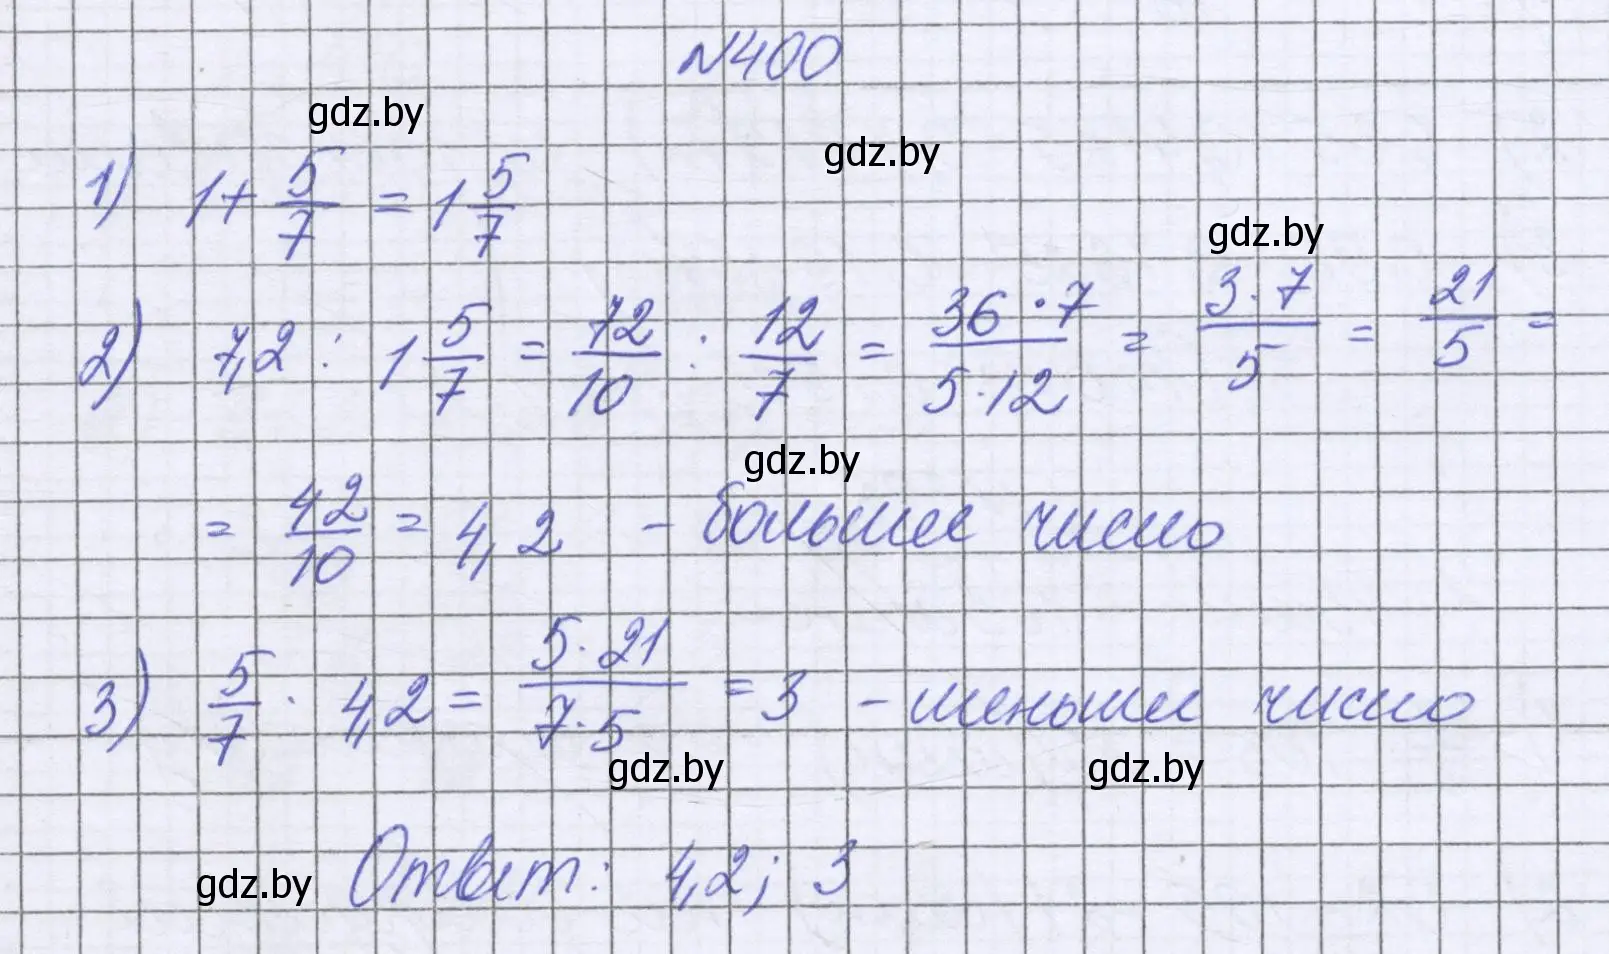 №400
gdz.by
gdz.by
1) 1 + 5/7 = 1 5/7
gdz.by
2) 7,2 : 1 5/7 = 72/10 : 12/7 = 36·7/5·12 = 3·7/5 = 21/5 =
gdz.by
= 42/10 = 4,2 - большее число
3) 5/7 · 4,2 = 5·21/7·5 = 3 - меньшее число
gdz.by
gdz.by
gdz.by
Ответ: 4,2; 3